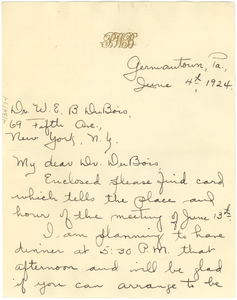 Germantown, Pa.,
June 4th, 1924.
Dr. W. E. B. DuBois,
69 Fifth Ave.,
New York, N.Y.
My dear Dr. DuBois,
Enclosed please find card
which tells the place and
hour of the meeting of June 13th.
I am planning to have
dinner at 5:30 P.M. that
afternoon and will be glad
if you can arrange to be